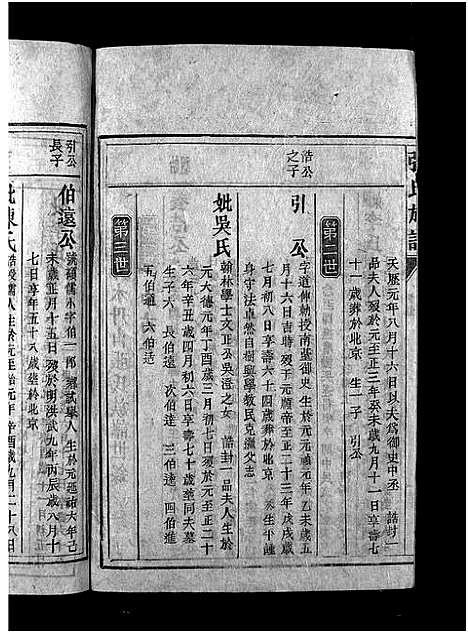 張氏族譜
天歷元年八月十六日以大為御史中丞 誥封一
品夫人歿於元至正三年癸未歲九月十一日享壽七
十一歲葬於北京 生一子 引公
第二世
浩公
之子
引公
字道伸勅授南臺御史生於元元禎元年乙未歲五
月十六日吉時歿于元順帝至正二十三年戊戌歲
七月初八日享壽六十四歲葬於北京 公生平謹
身守法卓然自樹興學教民克繼父志
妣吳氏
翰林學士文正公吳澄之女 誥封一品夫人生於
元大德元年丁酉歲三月初七日歿於元至正二十
六年辛丑歲四月初六日享壽七十歲塟同夫墓
生子六 長伯遠 次伯達 三伯逵 四伯進
五伯通 六伯适
第三世
引公
長子
伯遠公
號碩儒小字伯一郎 鄉試舉人生於元延祐六年己
未歲正月十五日歿於明洪武九年丙辰歲八月十
七日享年五十八歲塟於北京
妣陳氏
誥授孺人生於元至治元年辛酉歲九月二十八日